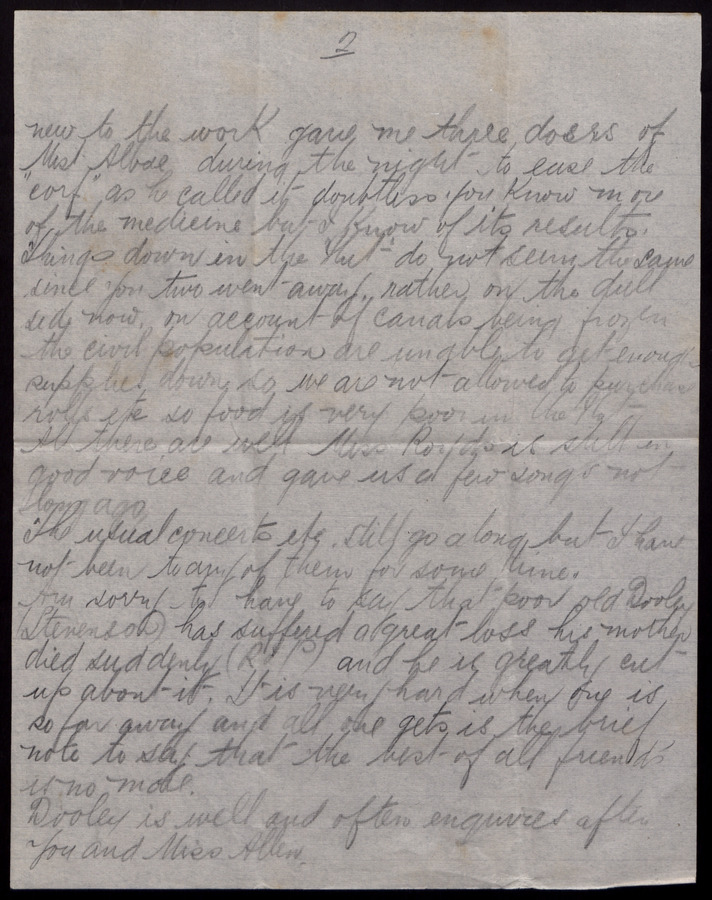 2
new to the work gave me three doses of
Mist Alboe during the night to ease the
"corf" as he called it doubtless you know more
of the medicine but I know of its results.
Things down in the "Hut" do not seem the same
since you two went away, rather on the dull
side now, on account of canals being frozen
the civil population are unable to get enough
supplies down so we are not allowed to purchase
rolls etc so food is very poor in the Hut
All there are well Miss is still in
good voice and gave us a few songs not
long ago
The usual concerts etc. still go along but I have
not been to any of them for some time.
Am sorry to have to say that poor old Dooley
(Stevenson) has suffered a great loss his mother
died suddenly (R.I.P) and he is greatly cut
up about it. It is very hard when one is
so far away and all one gets is the brief
note to say that the best of all friends
is no more.
Dooley is well and often enquires after
You and Miss Allen.